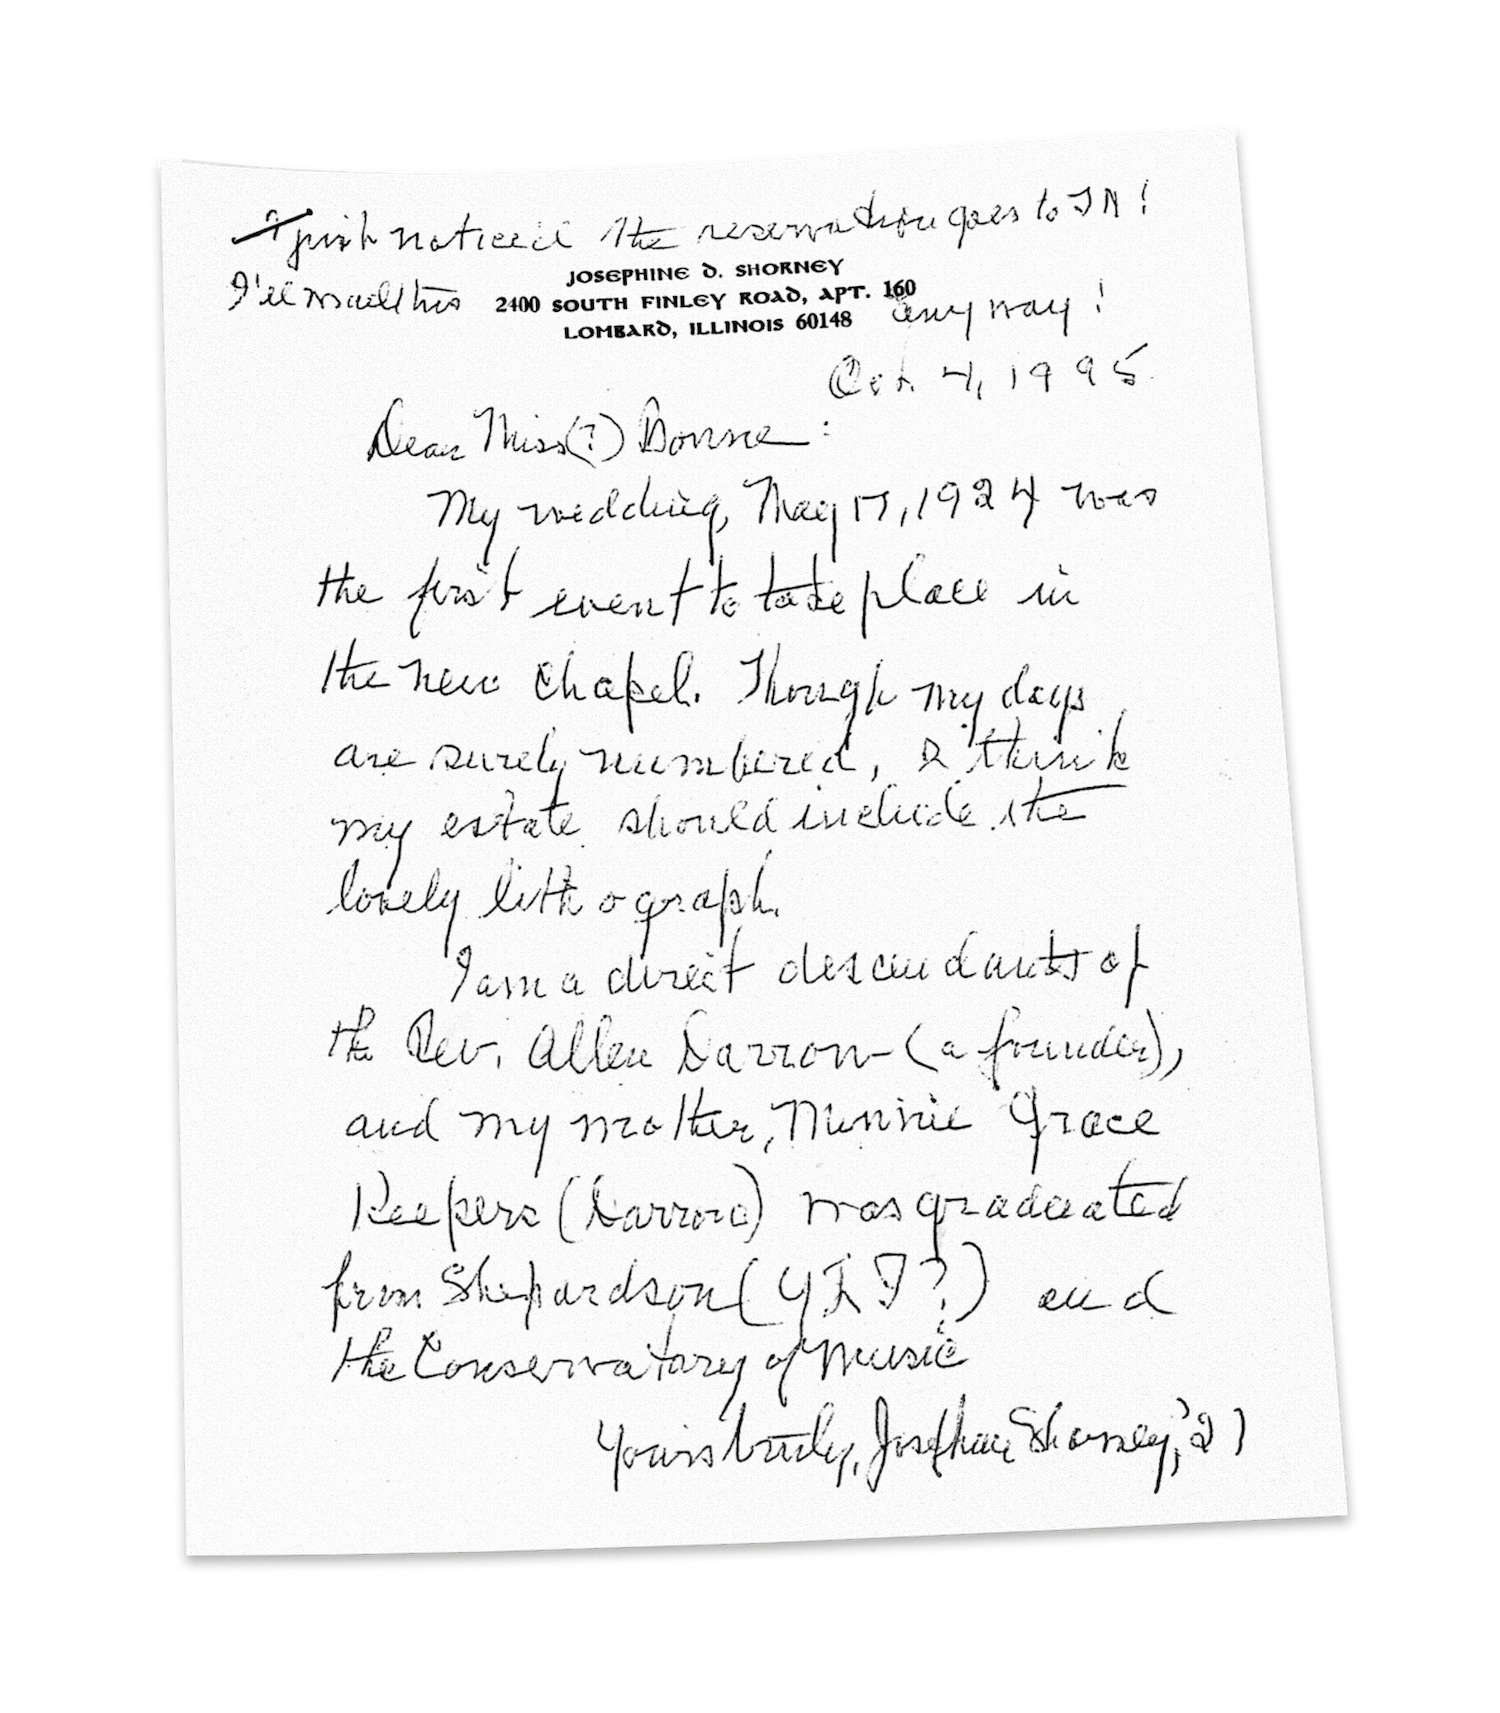 I just noticed the reservation goes to TN!
JOSEPHINE D. SHORNEY
I'll mail this
2400 SOUTH FINLEY ROAD, APT. 160
anyway!
LOMBARD, ILLINOIS 60148
Oct. 4, 1995
Dear Miss(?) Donne:
My wedding, May 17, 1924 was
the first event to take place in
the new Chapel. Though my days
are surely numbered, I think
my estate should include the
lovely lithograph.
I am a direct descendants of
the Rev. Allen Darrow (a founder),
and my mother, Minnie Grace
Keepers (Darrow) was graduated
from Shepardson (?) and
the Conservatory of Music
Yours truly, Josephine Shorney, '21